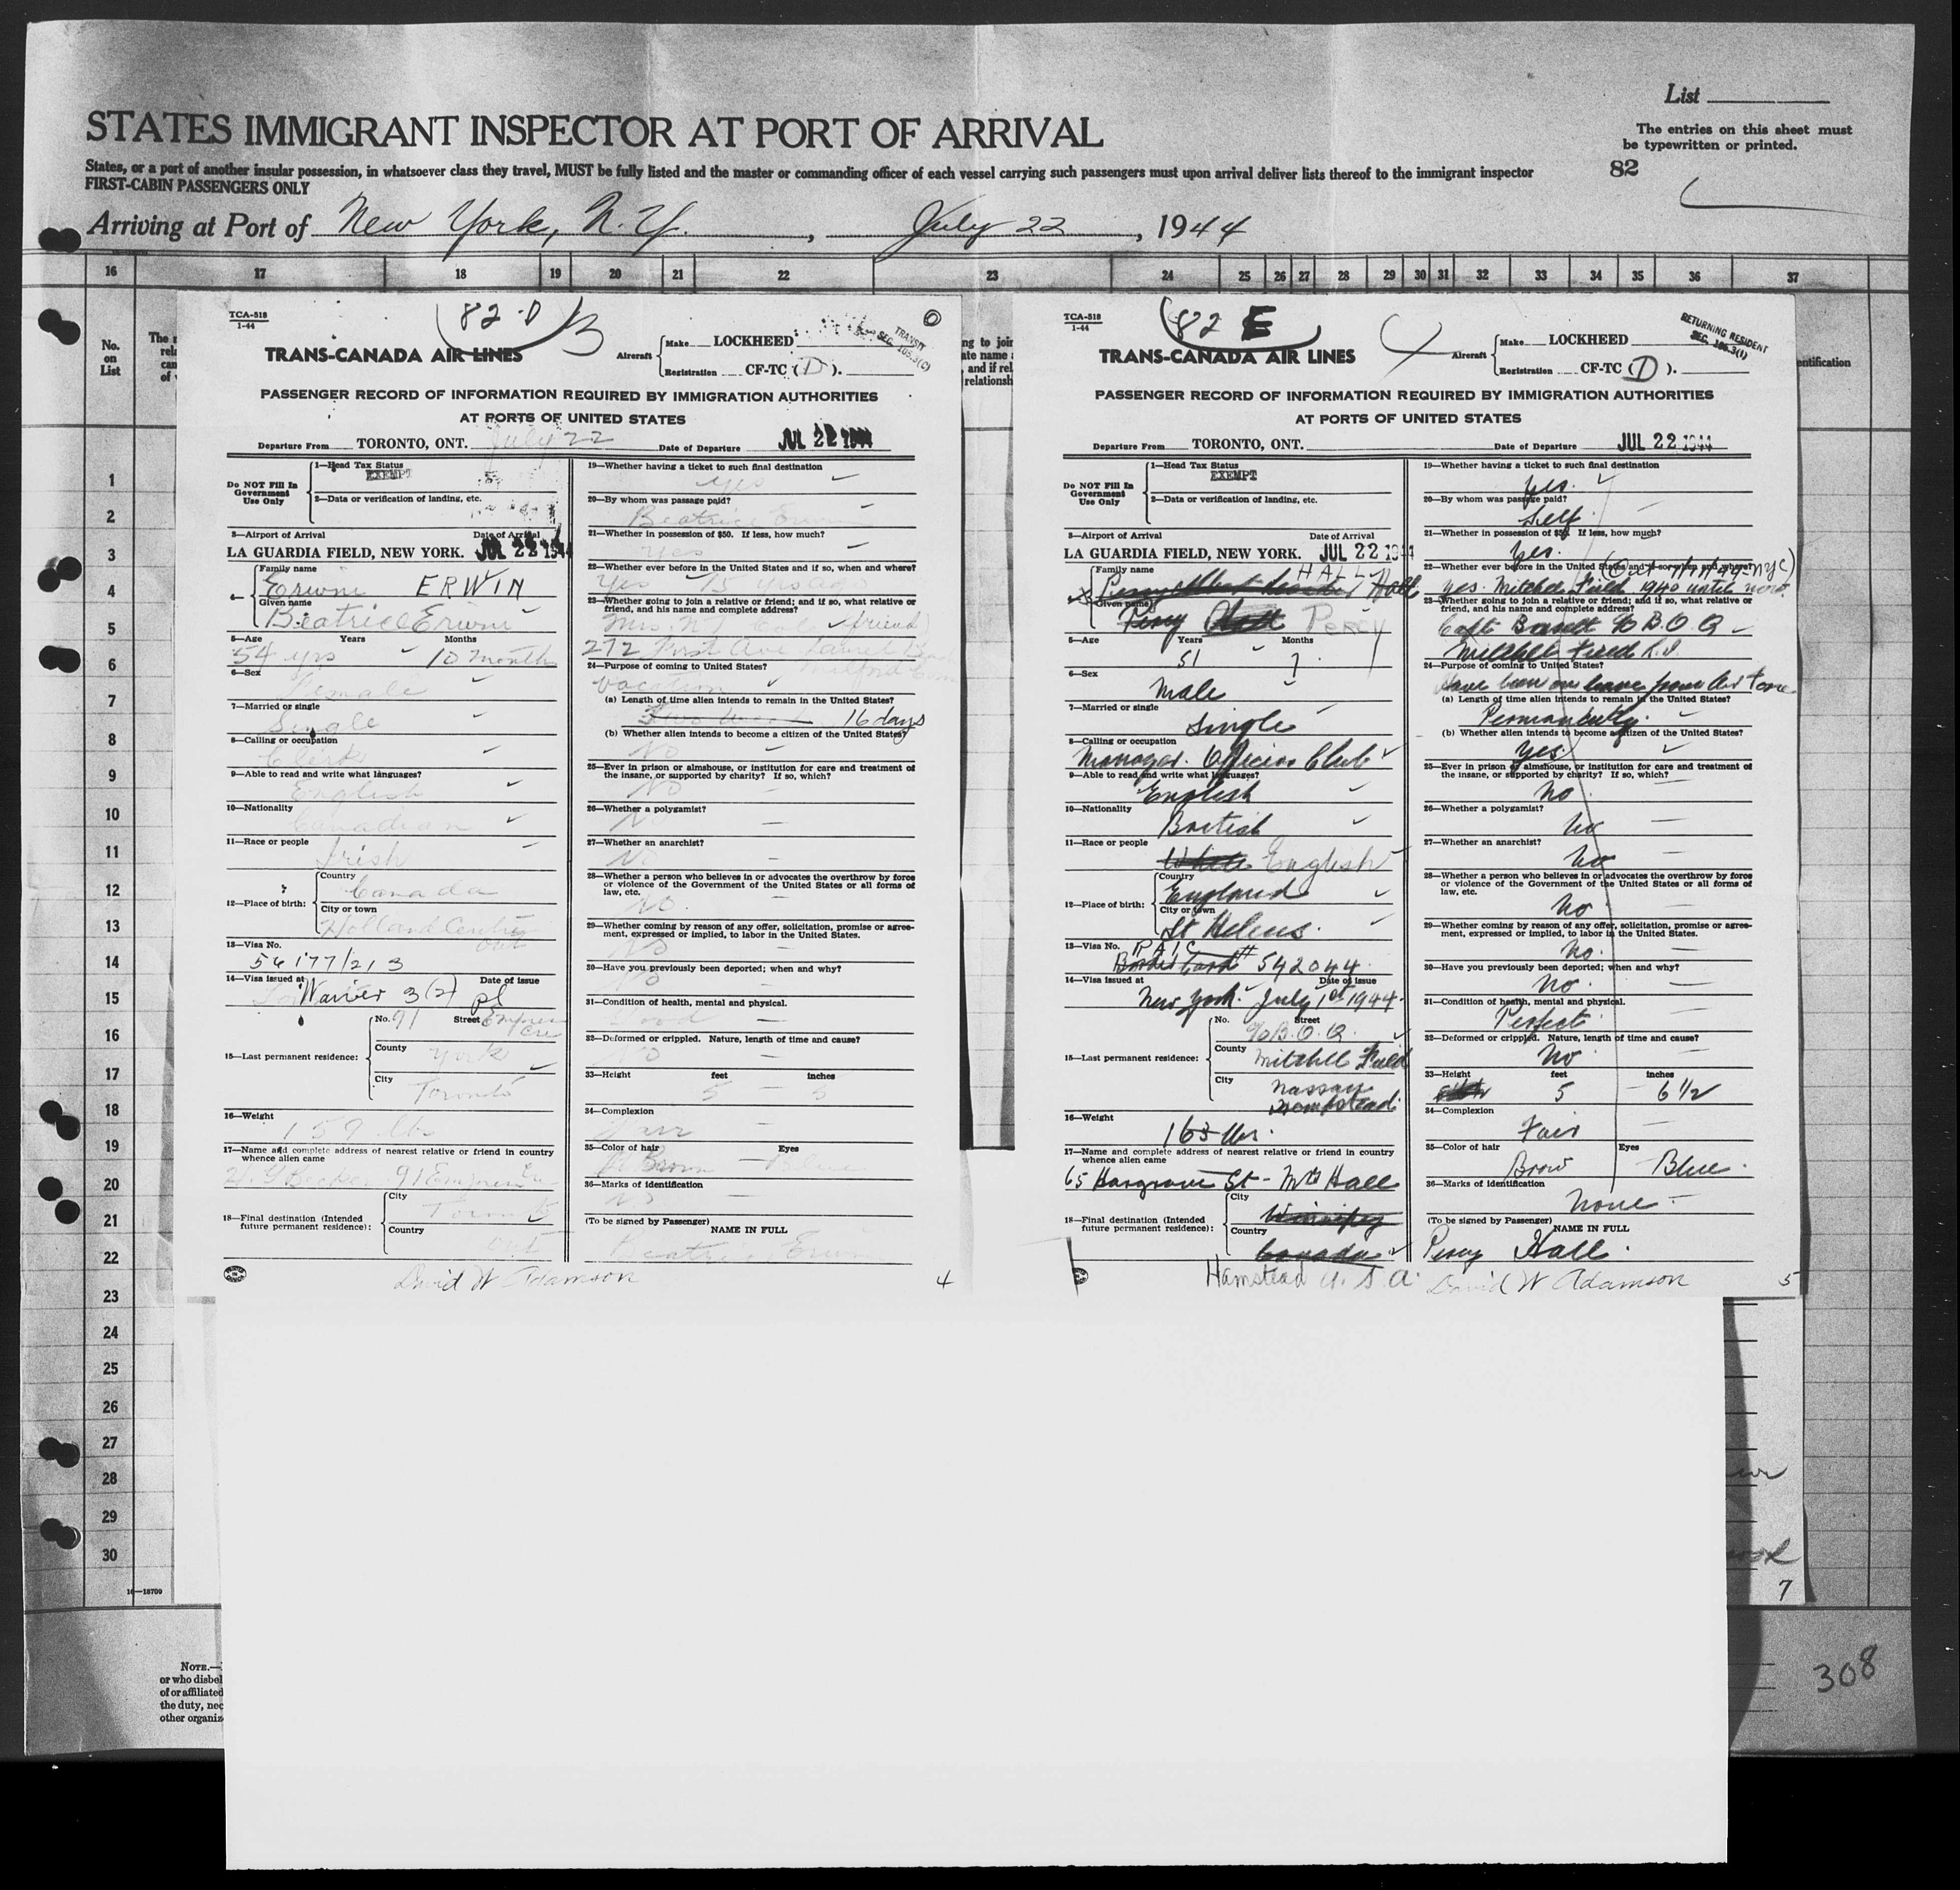 List
STATES IMMIGRANT INSPECTOR AT PORT OF ARRIVAL
The entries on this sheet must
be typewritten or printed.
States, or a port of another insular possession, in whatsoever class they travel, MUST be fully listed and the master or commanding officer of each vessel carrying such passengers must upon arrival deliver lists thereof to the immigrant inspector
82
FIRST-CABIN PASSENGERS ONLY
Arriving at Port of New York, N.Y. , July 22 , 1944
16 17 18 19 20 21 22 23 24 25 26 27 28 29 30 31 32 33 34 35 36 37
No.
on
List
1
2
3
4
5
6
7
8
9
10
11
12
13
14
15
16
17
18
19
20
21
22
23
24
25
26
27
28
29
30
16—18709
TCA-518
1-44
82 D
TRANS-CANADA AIR LINES
Aircraft
Make LOCKHEED
Registration CF-TC (D).
TRANSIT
SEC. 105.3(c)
PASSENGER RECORD OF INFORMATION REQUIRED BY IMMIGRATION AUTHORITIES
AT PORTS OF UNITED STATES
Departure From TORONTO, ONT. July 22 Date of Departure JUL 22 1944
Do NOT Fill In
Government
Use Only
1—Head Tax Status
EXEMPT
2—Data or verification of landing, etc.
3—Airport of Arrival Date of Arrival
LA GUARDIA FIELD, NEW YORK. JUL 22 1944
4—
Family name
Erwin ERWIN
Given name
Beatrice Erwin
5—Age Years Months
54 yrs 10 months
6—Sex
Female
7—Married or single
Single
8—Calling or occupation
Clerk
9—Able to read and write what languages?
English
10—Nationality
Canadian
11—Race or people
Irish
12—Place of birth:
Country
Canada
City or town
Holland Centre
Ont
13—Visa No.
56177/213
14—Visa issued at Date of issue
Waiver 3(2) pl
15—Last permanent residence:
No. 91 Street Empress
Cre
County
York
City
Toronto
16—Weight
159 lbs
17—Name and complete address of nearest relative or friend in country
whence alien came
91 Empress
18—Final destination (Intended
future permanent residence):
City
Toronto
Country
Ont
David W Adamson
19—Whether having a ticket to such final destination
Yes
20—By whom was passage paid?
Beatrice Erwin
21—Whether in possession of $50. If less, how much?
Yes
22—Whether ever before in the United States and if so, when and where?
Yes 15 yrs ago
23—Whether going to join a relative or friend; and if so, what relative or
friend, and his name and complete address?
Mrs. (friend)
272 First Ave Laurel
Milford Conn
24—Purpose of coming to United States?
Vacation
(a) Length of time alien intends to remain in the United States?
16 days
(b) Whether alien intends to become a citizen of the United States?
No
25—Ever in prison or almshouse, or institution for care and treatment of
the insane, or supported by charity? If so, which?
No
26—Whether a polygamist?
No
27—Whether an anarchist?
No
28—Whether a person who believes in or advocates the overthrow by force
or violence of the Government of the United States or all forms of
law, etc.
No.
29—Whether coming by reason of any offer, solicitation, promise or agree-
ment, expressed or implied, to labor in the United States.
No
30—Have you previously been deported; when and why?
No
31—Condition of health, mental and physical.
Good
32—Deformed or crippled. Nature, length of time and cause?
No
33—Height feet inches
5 5
34—Complexion
Fair
35—Color of hair Eyes
Brown Blue
36—Marks of identification
No
(To be signed by Passenger)
NAME IN FULL
Beatrice Erwin
4
TCA-518
1-44
82 E
TRANS-CANADA AIR LINES
Aircraft
Make LOCKHEED
Registration CF-TC (D).
RETURNING RESIDENT
SEC. 105.3(1)
PASSENGER RECORD OF INFORMATION REQUIRED BY IMMIGRATION AUTHORITIES
AT PORTS OF UNITED STATES
Departure From TORONTO, ONT. Date of Departure JUL 22 1944
Do NOT Fill In
Government
Use Only
1—Head Tax Status
EXEMPT
2—Data or verification of landing, etc.
3—Airport of Arrival Date of Arrival
LA GUARDIA FIELD, NEW YORK. JUL 22 1944
Family name HALL
Hall
Given name
Percy PERCY
5—Age Years Months
51 7.
6—Sex
Male
7—Married or single
Single
8—Calling or occupation
Manager. Officers Club
9—Able to read and write what languages?
English
10—Nationality
British
11—Race or people
White English
12—Place of birth:
Country
England
City or town
St Helens.
13—Visa No. RAIC
Border Card # 542044
14—Visa issued at Date of issue
New York. July 1st 1944.
15—Last permanent residence:
No. Street
c/o B.O.Q.
County Mitchell Field
City Nassau
Hempstead
16—Weight
163 lbs.
17—Name and complete address of nearest relative or friend in country
whence alien came
65 Hargrave St - Mrs Hall
18—Final destination (Intended
future permanent residence):
City
Winnipeg
Country
Canada
Hamstead U.S.A.
19—Whether having a ticket to such final destination
Yes.
20—By whom was passage paid?
Self
21—Whether in possession of $50. If less, how much?
Yes.
22—Whether ever before in the United States and if so, when and where?
Yes. Mitchel Field 1940 until now.
23—Whether going to join a relative or friend; and if so, what relative or
friend, and his name and complete address?
Capt c/o B.O.Q
Mitchel Field L.I.
24—Purpose of coming to United States?
Have been on leave from Air Force
(a) Length of time alien intends to remain in the United States?
Permanently.
(b) Whether alien intends to become a citizen of the United States?
Yes
25—Ever in prison or almshouse, or institution for care and treatment of
the insane, or supported by charity? If so, which?
No
26—Whether a polygamist?
No
27—Whether an anarchist?
No
28—Whether a person who believes in or advocates the overthrow by force
or violence of the Government of the United States or all forms of
law, etc.
No
29—Whether coming by reason of any offer, solicitation, promise or agree-
ment, expressed or implied, to labor in the United States.
No.
30—Have you previously been deported; when and why?
No.
31—Condition of health, mental and physical.
Perfect
32—Deformed or crippled. Nature, length of time and cause?
No
33—Height feet inches
5 6 1/2
34—Complexion
Fair
35—Color of hair Eyes
Brow Blue.
36—Marks of identification
None
(To be signed by Passenger)
NAME IN FULL
Percy Hall.
David W Adamson 5
7
NOTE.—
or who disbel
of or affiliated
the duty, nec
other organiz
308